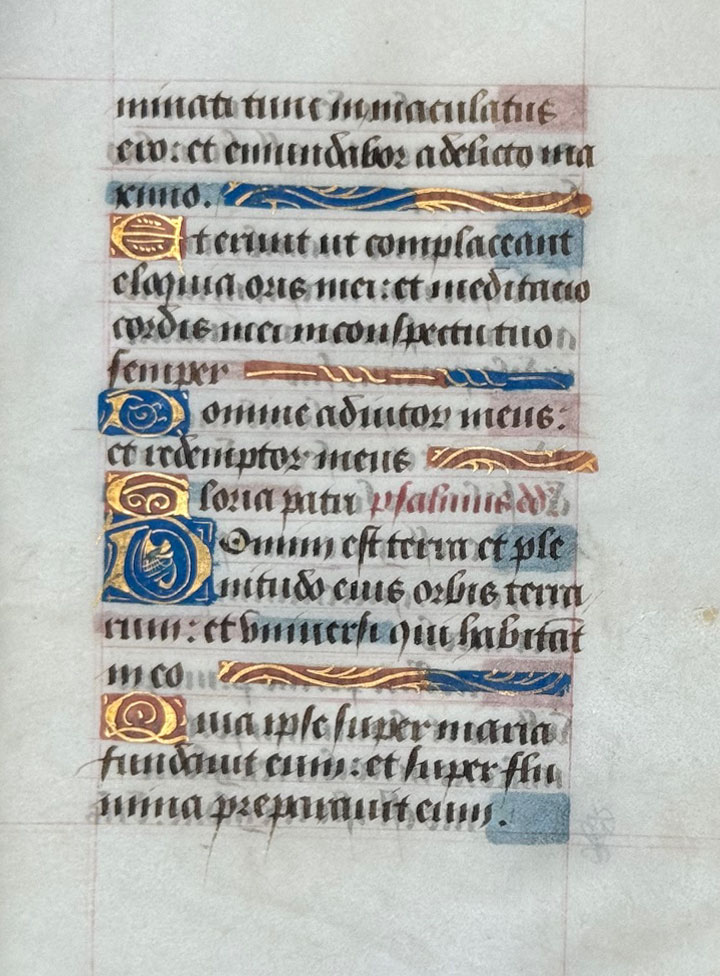 minati tunc inmaculatus
ero: et emundabor a delicto ma
ximo.
Et erunt ut complaceant
eloquia oris mei: et meditacio
cordis mei in conspectu tuo
semper
Domine adiutor meus:
et redemptor meus
Gloria patri psalmus dd
Domini est terra et ple
nitudo eius orbis terra
rum: et universi qui habitāt
in eo
Quia ipse super maria
fundavit eum: et super flu
mina preparavit eum.